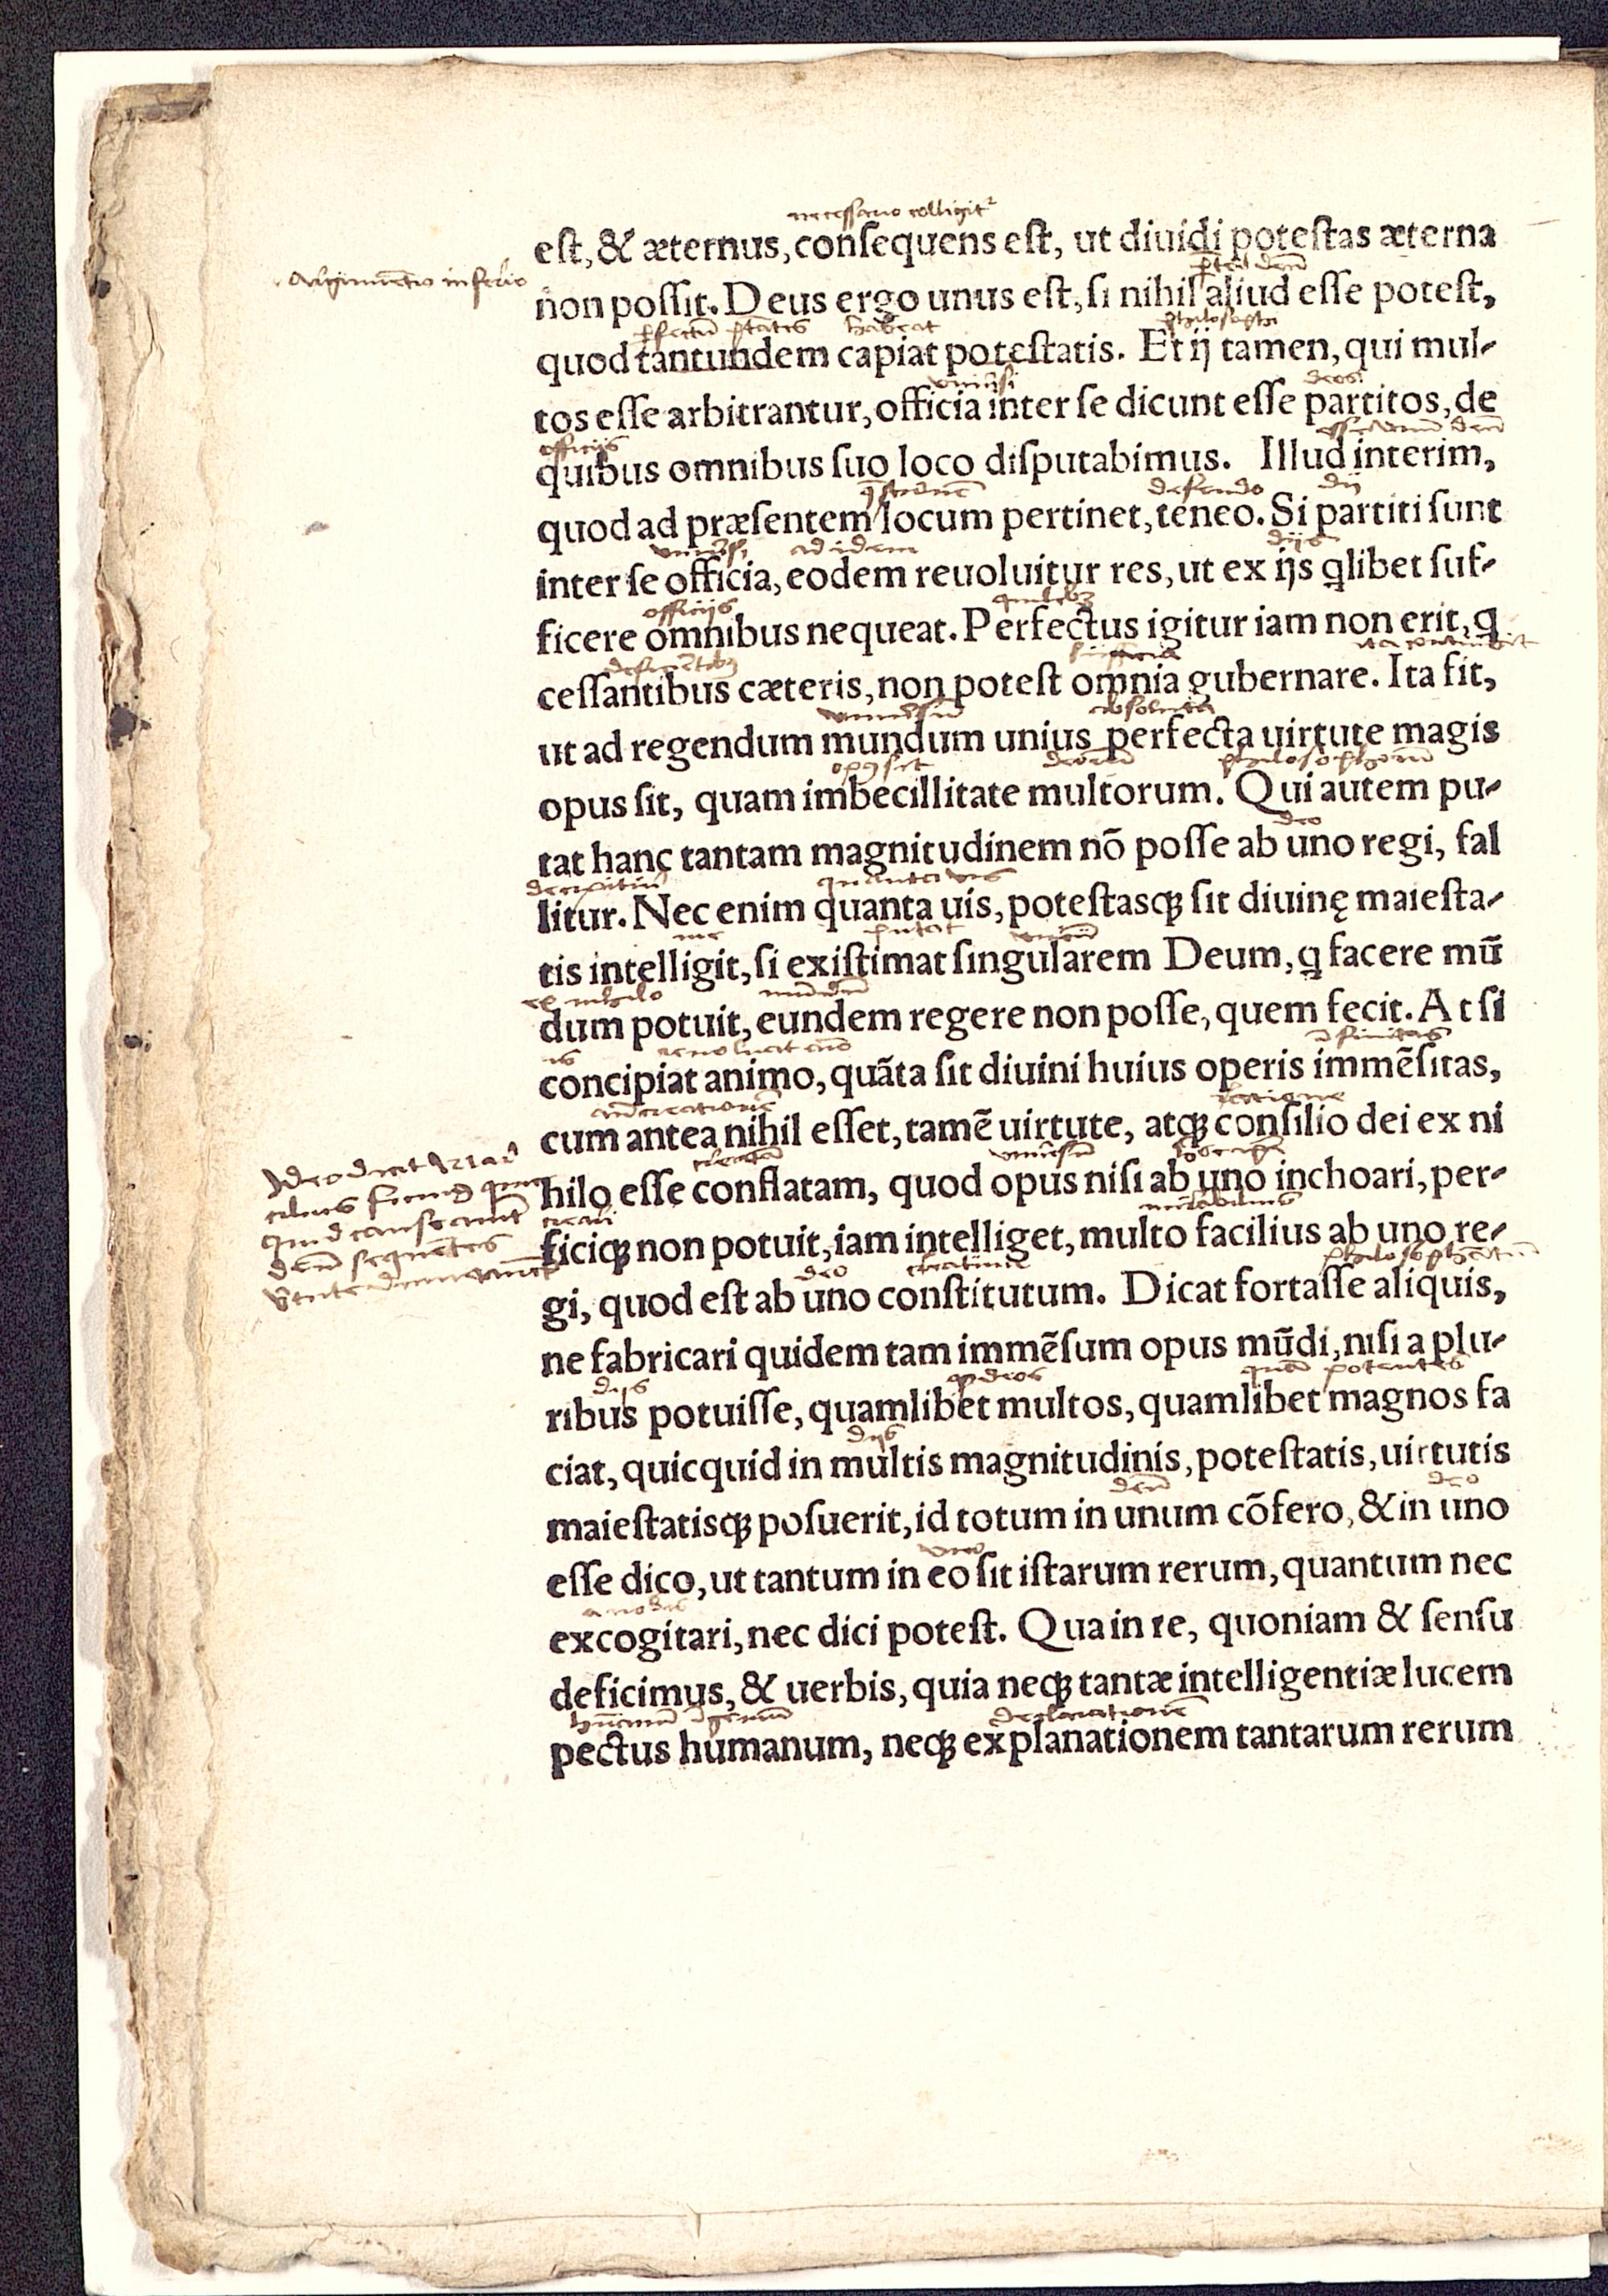 necessario colligit
est, & æternus, consequens est, ut diuidi potestas æterna
non possit. Deus ergo unus est, si nihil aliud esse potest,
habeat philosophi
quod tantundem capiat potestatis. Et ij tamen, qui mul-
deos
tos esse arbitrantur, officia inter se dicunt esse partitos, de
officijs
quibus omnibus suo loco disputabimus. Illud interim,
defendo dij
quod ad præsentem locum pertinet, teneo. Si partiti sunt
ad idem dijs
inter se officia, eodem reuoluitur res, ut ex ijs qlibet suf-
officijs
ficere omnibus nequeat. Perfectus igitur iam non erit, q
cessantibus cæteris, non potest omnia gubernare. Ita fit,
absoluta
ut ad regendum mundum unius perfecta uirtute magis
opus sit, quam imbecillitate multorum. Qui autem pu-
deo
tat hanc tantam magnitudinem nõ posse ab uno regi, fal
litur. Nec enim quanta uis, potestasq; sit diuinę maiesta-
putat
tis intelligit, si existimat singularem Deum, q facere mũ
ex nihilo
dum potuit, eundem regere non posse, quem fecit. At si
is
concipiat animo, quãta sit diuini huius operis immẽsitas,
cum antea nihil esset, tamẽ uirtute, atq; consilio dei ex ni
hilo esse conflatam, quod opus nisi ab uno inchoari, per-
creari
ficiq; non potuit, iam intelliget, multo facilius ab uno re-
deo
gi, quod est ab uno constitutum. Dicat fortasse aliquis,
ne fabricari quidem tam immẽsum opus mũdi, nisi a plu-
dijs
ribus potuisse, quamlibet multos, quamlibet magnos fa
dijs
ciat, quicquid in multis magnitudinis, potestatis, uirtutis
deũ deo
maiestatisq; posuerit, id totum in unum cõfero, & in uno
uno
esse dico, ut tantum in eo sit istarum rerum, quantum nec
a nobis
excogitari, nec dici potest. Qua in re, quoniam & sensu
deficimus, & uerbis, quia neq; tantæ intelligentiæ lucem
declarationẽ
pectus humanum, neq; explanationem tantarum rerum